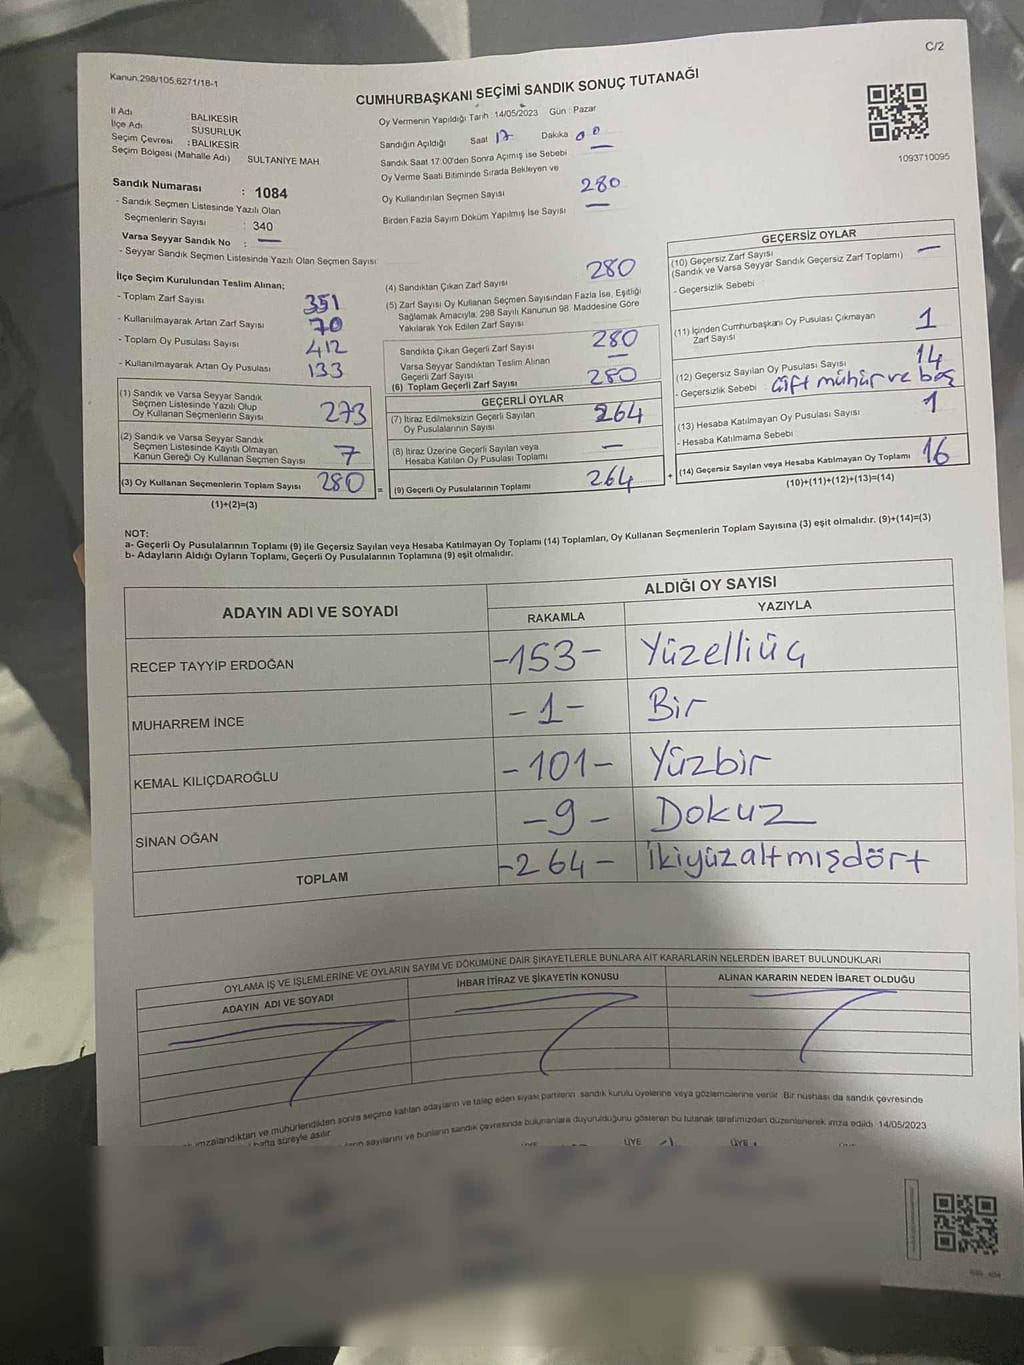 C/2
Kanun.298/105,6271/18-1
CUMHURBAŞKANI SEÇİMİ SANDIK SONUÇ TUTANAĞI
İl Adı : BALIKESİR
İlçe Adı : SUSURLUK
Seçim Çevresi : BALIKESİR
Seçim Bölgesi (Mahalle Adı) SULTANİYE MAH
Sandık Numarası : 1084
- Sandık Seçmen Listesinde Yazılı Olan
Seçmenlerin Sayısı : 340
Varsa Seyyar Sandık No : —
- Seyyar Sandık Seçmen Listesinde Yazılı Olan Seçmen Sayısı
Oy Vermenin Yapıldığı Tarih :14/05/2023 Gün : Pazar
Sandığın Açıldığı Saat 17 Dakika 00
Sandık Saat 17:00'den Sonra Açımış ise Sebebi —
Oy Verme Saati Bitiminde Sırada Bekleyen ve
Oy Kullandırılan Seçmen Sayısı 280
Birden Fazla Sayım Döküm Yapılmış İse Sayısı —
1093710095
İlçe Seçim Kurulundan Teslim Alınan;
- Toplam Zarf Sayısı 351
- Kullanılmayarak Artan Zarf Sayısı 70
- Toplam Oy Pusulası Sayısı 412
- Kullanılmayarak Artan Oy Pusulası 133
(1) Sandık ve Varsa Seyyar Sandık
Seçmen Listesinde Yazılı Olup
Oy Kullanan Seçmenlerin Sayısı 273
(2) Sandık ve Varsa Seyyar Sandık
Seçmen Listesinde Kayıtlı Olmayan
Kanun Gereği Oy Kullanan Seçmen Sayısı 7
(3) Oy Kullanan Seçmenlerin Toplam Sayısı 280
(1)+(2)=(3)
(4) Sandıktan Çıkan Zarf Sayısı 280
(5) Zarf Sayısı Oy Kullanan Seçmen Sayısından Fazla İse, Eşitliği
Sağlamak Amacıyla, 298 Sayılı Kanunun 98. Maddesine Göre
Yakılarak Yok Edilen Zarf Sayısı
Sandıkta Çıkan Geçerli Zarf Sayısı 280
Varsa Seyyar Sandıktan Teslim Alınan
Geçerli Zarf Sayısı —
(6) Toplam Geçerli Zarf Sayısı 280
GEÇERLİ OYLAR
(7) İtiraz Edilmeksizin Geçerli Sayılan
Oy Pusulalarının Sayısı 264
(8) İtiraz Üzerine Geçerli Sayılan veya
Hesaba Katılan Oy Pusulası Toplamı —
= (9) Geçerli Oy Pusulalarının Toplamı 264
GEÇERSİZ OYLAR
(10) Geçersiz Zarf Sayısı —
(Sandık ve Varsa Seyyar Sandık Geçersiz Zarf Toplamı)
- Geçersizlik Sebebi
(11) İçinden Cumhurbaşkanı Oy Pusulası Çıkmayan
Zarf Sayısı 1
(12) Geçersiz Sayılan Oy Pusulası Sayısı 14
- Geçersizlik Sebebi : çift mühür ve boş
(13) Hesaba Katılmayan Oy Pusulası Sayısı 1
- Hesaba Katılmama Sebebi
+ (14) Geçersiz Sayılan veya Hesaba Katılmayan Oy Toplamı 16
(10)+(11)+(12)+(13)=(14)
NOT:
a- Geçerli Oy Pusulalarının Toplamı (9) ile Geçersiz Sayılan veya Hesaba Katılmayan Oy Toplamı (14) Toplamları, Oy Kullanan Seçmenlerin Toplam Sayısına (3) eşit olmalıdır. (9)+(14)=(3)
b- Adayların Aldığı Oyların Toplamı, Geçerli Oy Pusulalarının Toplamına (9) eşit olmalıdır.
ADAYIN ADI VE SOYADI ALDIĞI OY SAYISI
RAKAMLA YAZIYLA
RECEP TAYYİP ERDOĞAN -153- Yüzelliüç
MUHARREM İNCE -1- Bir
KEMAL KILIÇDAROĞLU -101- Yüzbir
SİNAN OĞAN -9- Dokuz
TOPLAM -264- İkiyüzaltmışdört
OYLAMA İŞ VE İŞLEMLERİNE VE OYLARIN SAYIM VE DÖKÜMÜNE DAİR ŞİKAYETLERLE BUNLARA AİT KARARLARIN NELERDEN İBARET BULUNDUKLARI
ADAYIN ADI VE SOYADI İHBAR İTİRAZ VE ŞİKAYETİN KONUSU ALINAN KARARIN NEDEN İBARET OLDUĞU
imzalandıktan ve mühürlendikten sonra seçime katılan adayların ve talep eden siyasi partilerin sandık kurulu üyelerine veya gözlemcilerine verilir. Bir nüshası da sandık çevresinde
hafta süreyle asılır.
sayılarını ve bunların sandık çevresinde bulunanlara duyurulduğunu gösteren bu tutanak tarafımızdan düzenlenerek imza edildi. 14/05/2023
ÜYE ÜYE